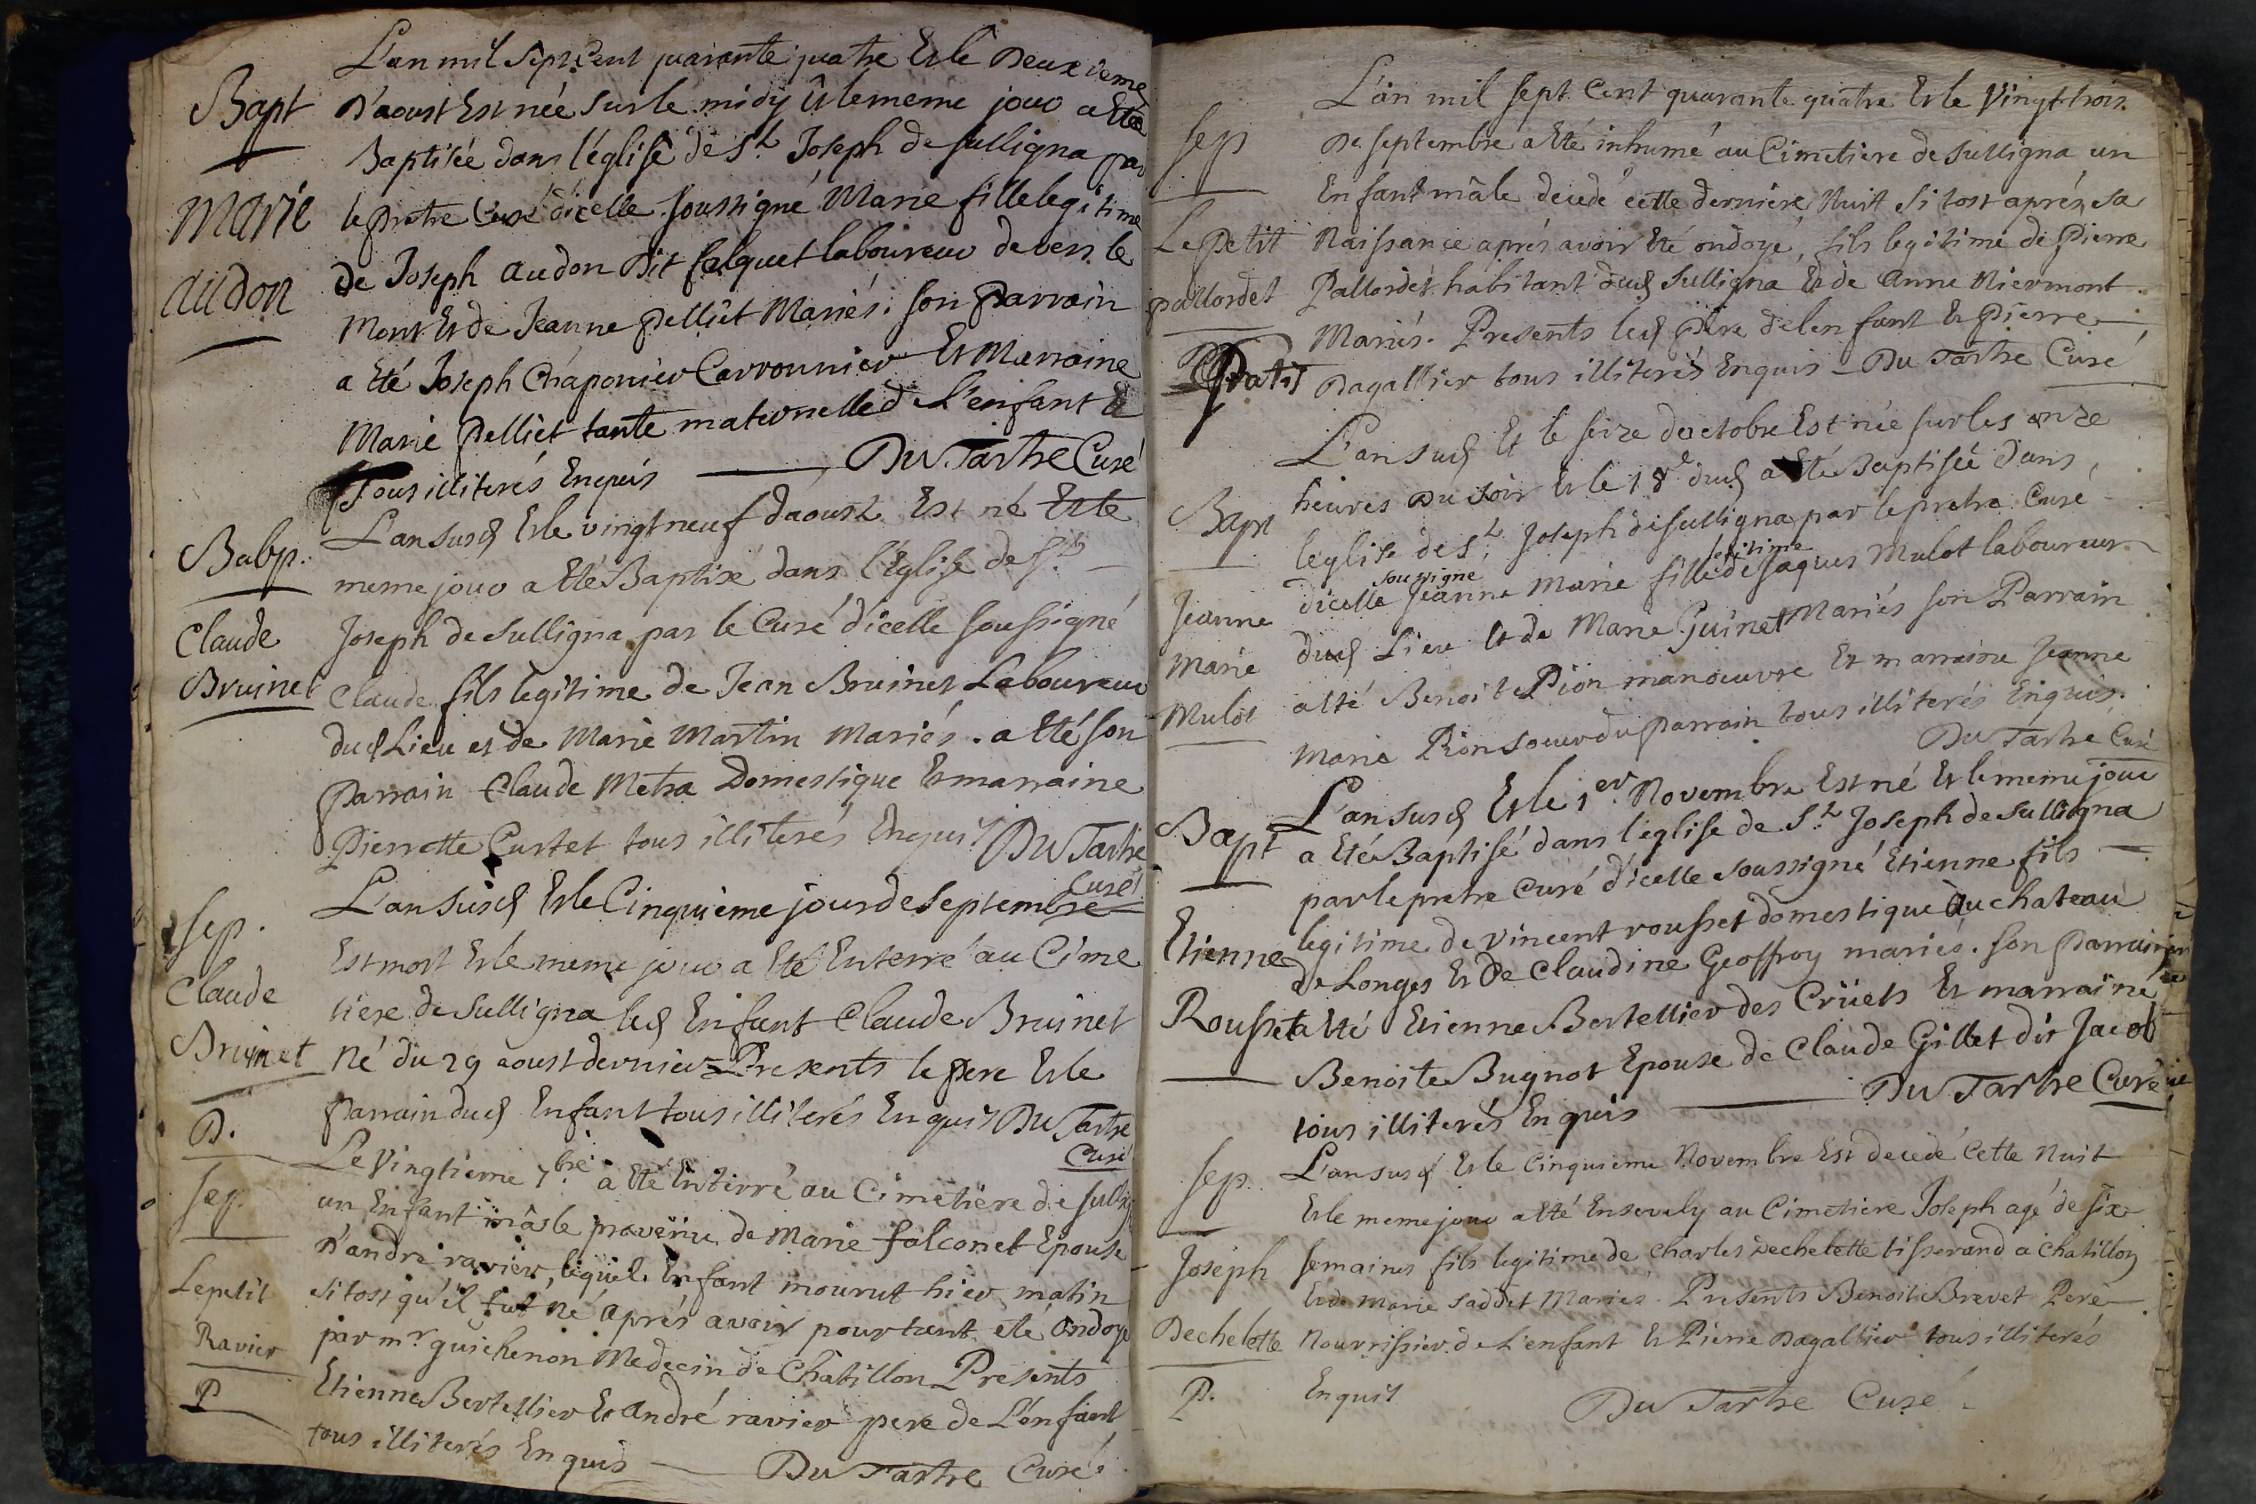 L'an mil sept Cent quarante quatre Et le Deuxieme
Bapt
D'aoust Est née sur le midy Et le meme jour a Eté
Baptisée dans l'église de St Joseph de sulligna par
Marie
le pretre Curé d'icelle soussigné Marie fille legitime
Audon
de Joseph audon Dit falquet laboureur de vers le
Mont Et de Jeanne pelliet Mariés. son parrain
a Eté Joseph Chaponier Carronnier Et Marraine
Marie pelliet tante maternelle de L'enfant &
Tous illiterés Enquis Du Tartre Curé
L'an susd Et le vingt neuf d'aoust Est né Et le
Babp.
meme jour a Eté Baptisé dans l'Eglise de St
Claude
Joseph de sulligna par le Curé d'icelle soussigné
Bruinet
Claude fils legitime de Jean Bruinet Laboureur
dud Lieu et de Marie Martin Mariés. a Eté son
parrain Claude Metra Domestique Et marraine
Pierrette Curtet tous illiterés Enquis Du Tartre
Curé
L'an susd Et le Cinquieme jour de septembre
sep.
Est mort Et le meme jour a Eté Enterré au Cime
Claude
tiere de sulligna led Enfant Claude Bruinet
Bruinet
Né du 29 aoust dernier Presents le pere Et le
parrain dud Enfant tous illiterés Enquis Du Tartre
Curé
P.
Le Vingtieme 7bre a Eté Enterré au Cimetiere de sullig
sep.
un Enfant masle provenu de Marie falconet Epouse
d'andré ravier, lequel Enfant mourut hier matin
Le petit
sitost qu'il fut né aprés avoir pourtant eté ondoyé
Ravier
par mr guichenon Medecin de Chatillon Presents
P
Etienne Bertellier Et andré ravier pere de L'enfant
tous illiterés Enquis Du Tartre Curé.
L'an mil sept Cent quarante quatre Et le Vingt trois
sep
De septembre a Eté inhumé au Cimetiere de sulligna un
Enfant mâle decedé cette derniere Nuit si tost aprés sa
Le petit
Naissance aprés avoir Eté ondoyé, fils legitime de Pierre
pallordet
Pallordet habitant dud sulligna Et de Anne Niermont
Mariés. Presents led Pere de lenfant Et Pierre
Gratis
Dagallier tous illiterés Enquis Du Tartre Curé
L'an susd Et le seize doctobre Est née sur les onze
heures Du soir Et le 18e dud a Eté Baptisée dans
Bapt
leglise de St Joseph de sulligna par le pretre Curé
soussigné legitime
d'icelle Jeanne Marie fille de Jaques Mulot laboureur
Jeanne
dud Lieu Et de Marie Guinet Mariés son Parrain
Marie
a Eté Benoit Pion manoeuvre Et marraine Jeanne
Mulot
Marie Pion soeur du parrain tous illiterés Enquis.
Du Tartre Curé
L'an susd Et le 1er Novembre Est né Et le meme jour
Bapt
a Eté Baptisé dans l'eglise de St Joseph de sulligna
par le pretre Curé d'icelle soussigné Etienne fils
legitime de vincent rousset domestique au chateau
Etienne
de Longes Et De Claudine Geoffroy mariés. son parrain
Rousset
a Eté Etienne Bertellier des Crüets Et marraine
Benoite Bugnot Epouse de Claude Gillet dit Jacob
tous illiterés Enquis Du Tartre Curé
sep.
L'an susd Et le Cinquieme Novembre Est decedé Cette Nuit
Et le meme jour a Eté Ensevely au Cimetiere Joseph agé de six
Joseph
semaines fils legitime de Charles Dechelette tisserand a Chatillon
Et de Marie saddet Mariés. Presents Benoit Brevet Pere
Dechelette
Nourrissier de L'enfant Et Pierre Dagallier tous illiterés
P.
Enquis Du Tartre Curé